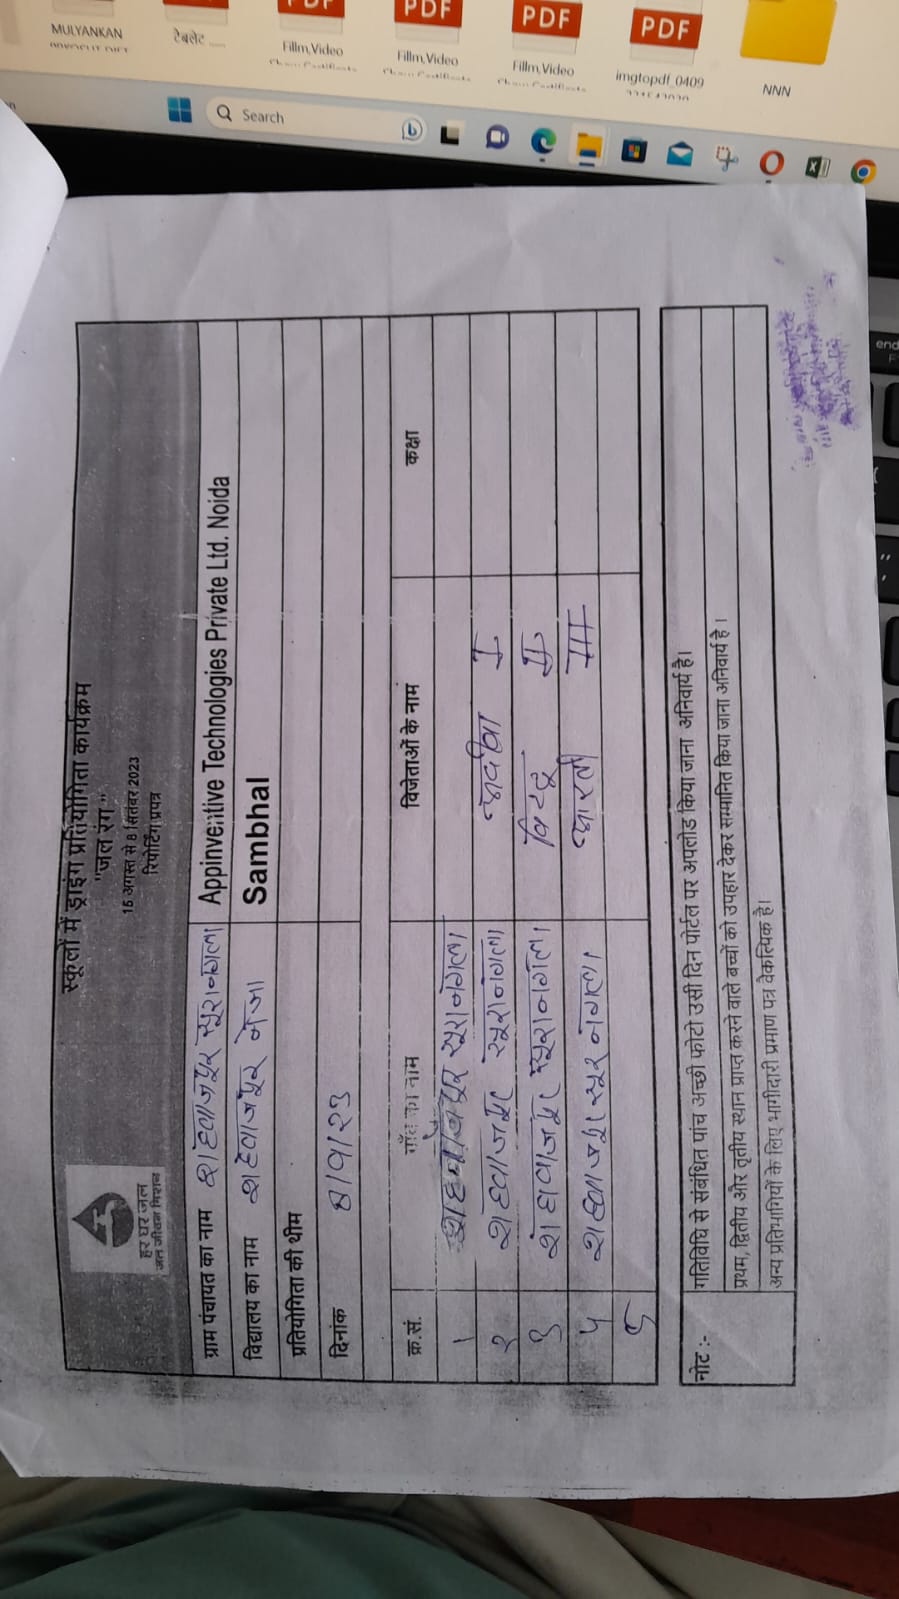 MULYANKAN
टेबलेट ......
PDF
Fillm,Video
PDF
Fillm,Video
PDF
Fillm,Video
PDF
imgtopdf_0409
NNN
Search
end
स्कूलों में ड्राइंग प्रतियोगिता कार्यक्रम
"जल रंग"
16 अगस्त से 8 सितंबर 2023
रिपोर्टिंग प्रपत्र
हर घर जल
जल जीवन मिशन
ग्राम पंचायत का नाम शहवाजपुर सूरा नगला Appinventive Technologies Private Ltd. Noida
विद्यालय का नाम शहवाजपुर Sambhal
प्रतियोगिता की थीम
दिनांक 8/9/23
क्र.सं. गाँव का नाम विजेताओं के नाम कक्षा
१ शहवाजपुर सूरा नगला।
२ शहवाजपुर सूरा नगला। I
३ शहवाजपुर सूरा नगला। II
४ शहवाजपुर सूरा नगला। आरती III
५
नोट :- गतिविधि से संबंधित पांच अच्छी फोटो उसी दिन पोर्टल पर अपलोड किया जाना अनिवार्य है।
प्रथम, द्वितीय और तृतीय स्थान प्राप्त करने वाले बच्चों को उपहार देकर सम्मानित किया जाना अनिवार्य है।
अन्य प्रतिभागियों के लिए भागीदारी प्रमाण पत्र वैकल्पिक है।